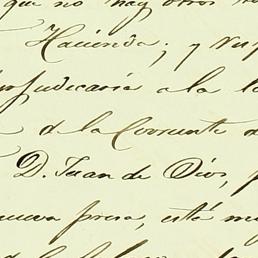 que no hay otros
Hacienda; y
perjudicaría a la
de la Corriente de
D. Juan de Dios,
nueva presa, está